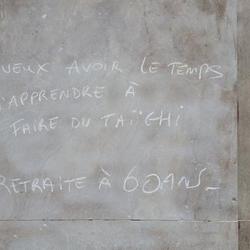 VEUX AVOIR LE TEMPS
D'APPRENDRE À
FAIRE DU TAÏCHI
RETRAITE À 60 ANS_